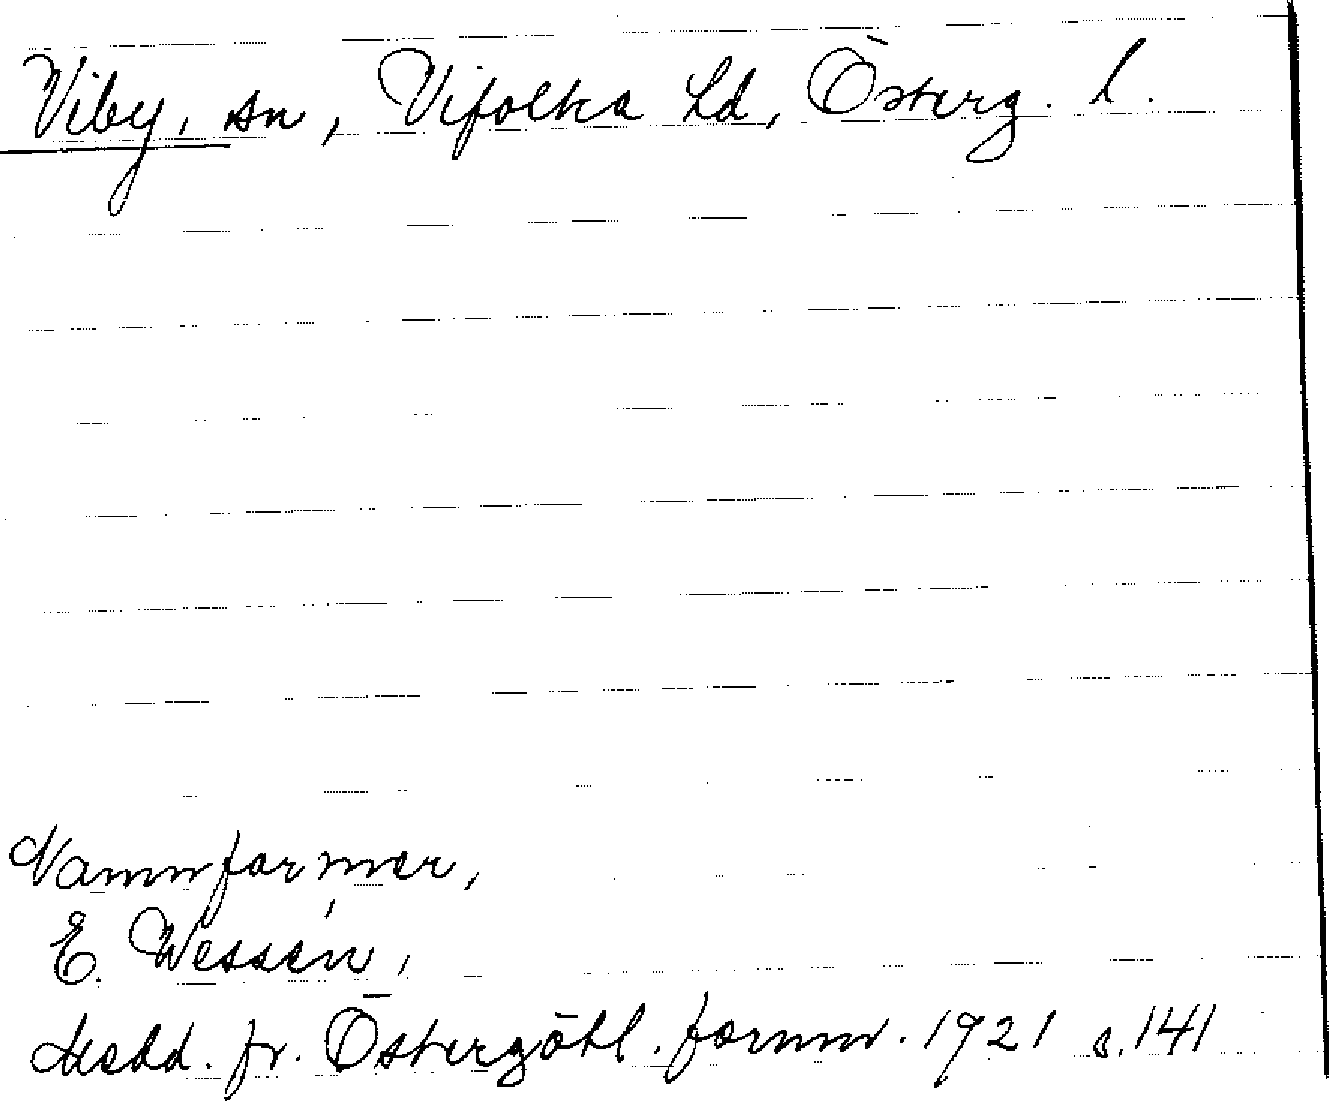 Viby, sn, Vifolka hd, Österg. l.
Namnformer,
E. Wessén,
Medd. fr. Östergötl. fornm. 1921 s. 141